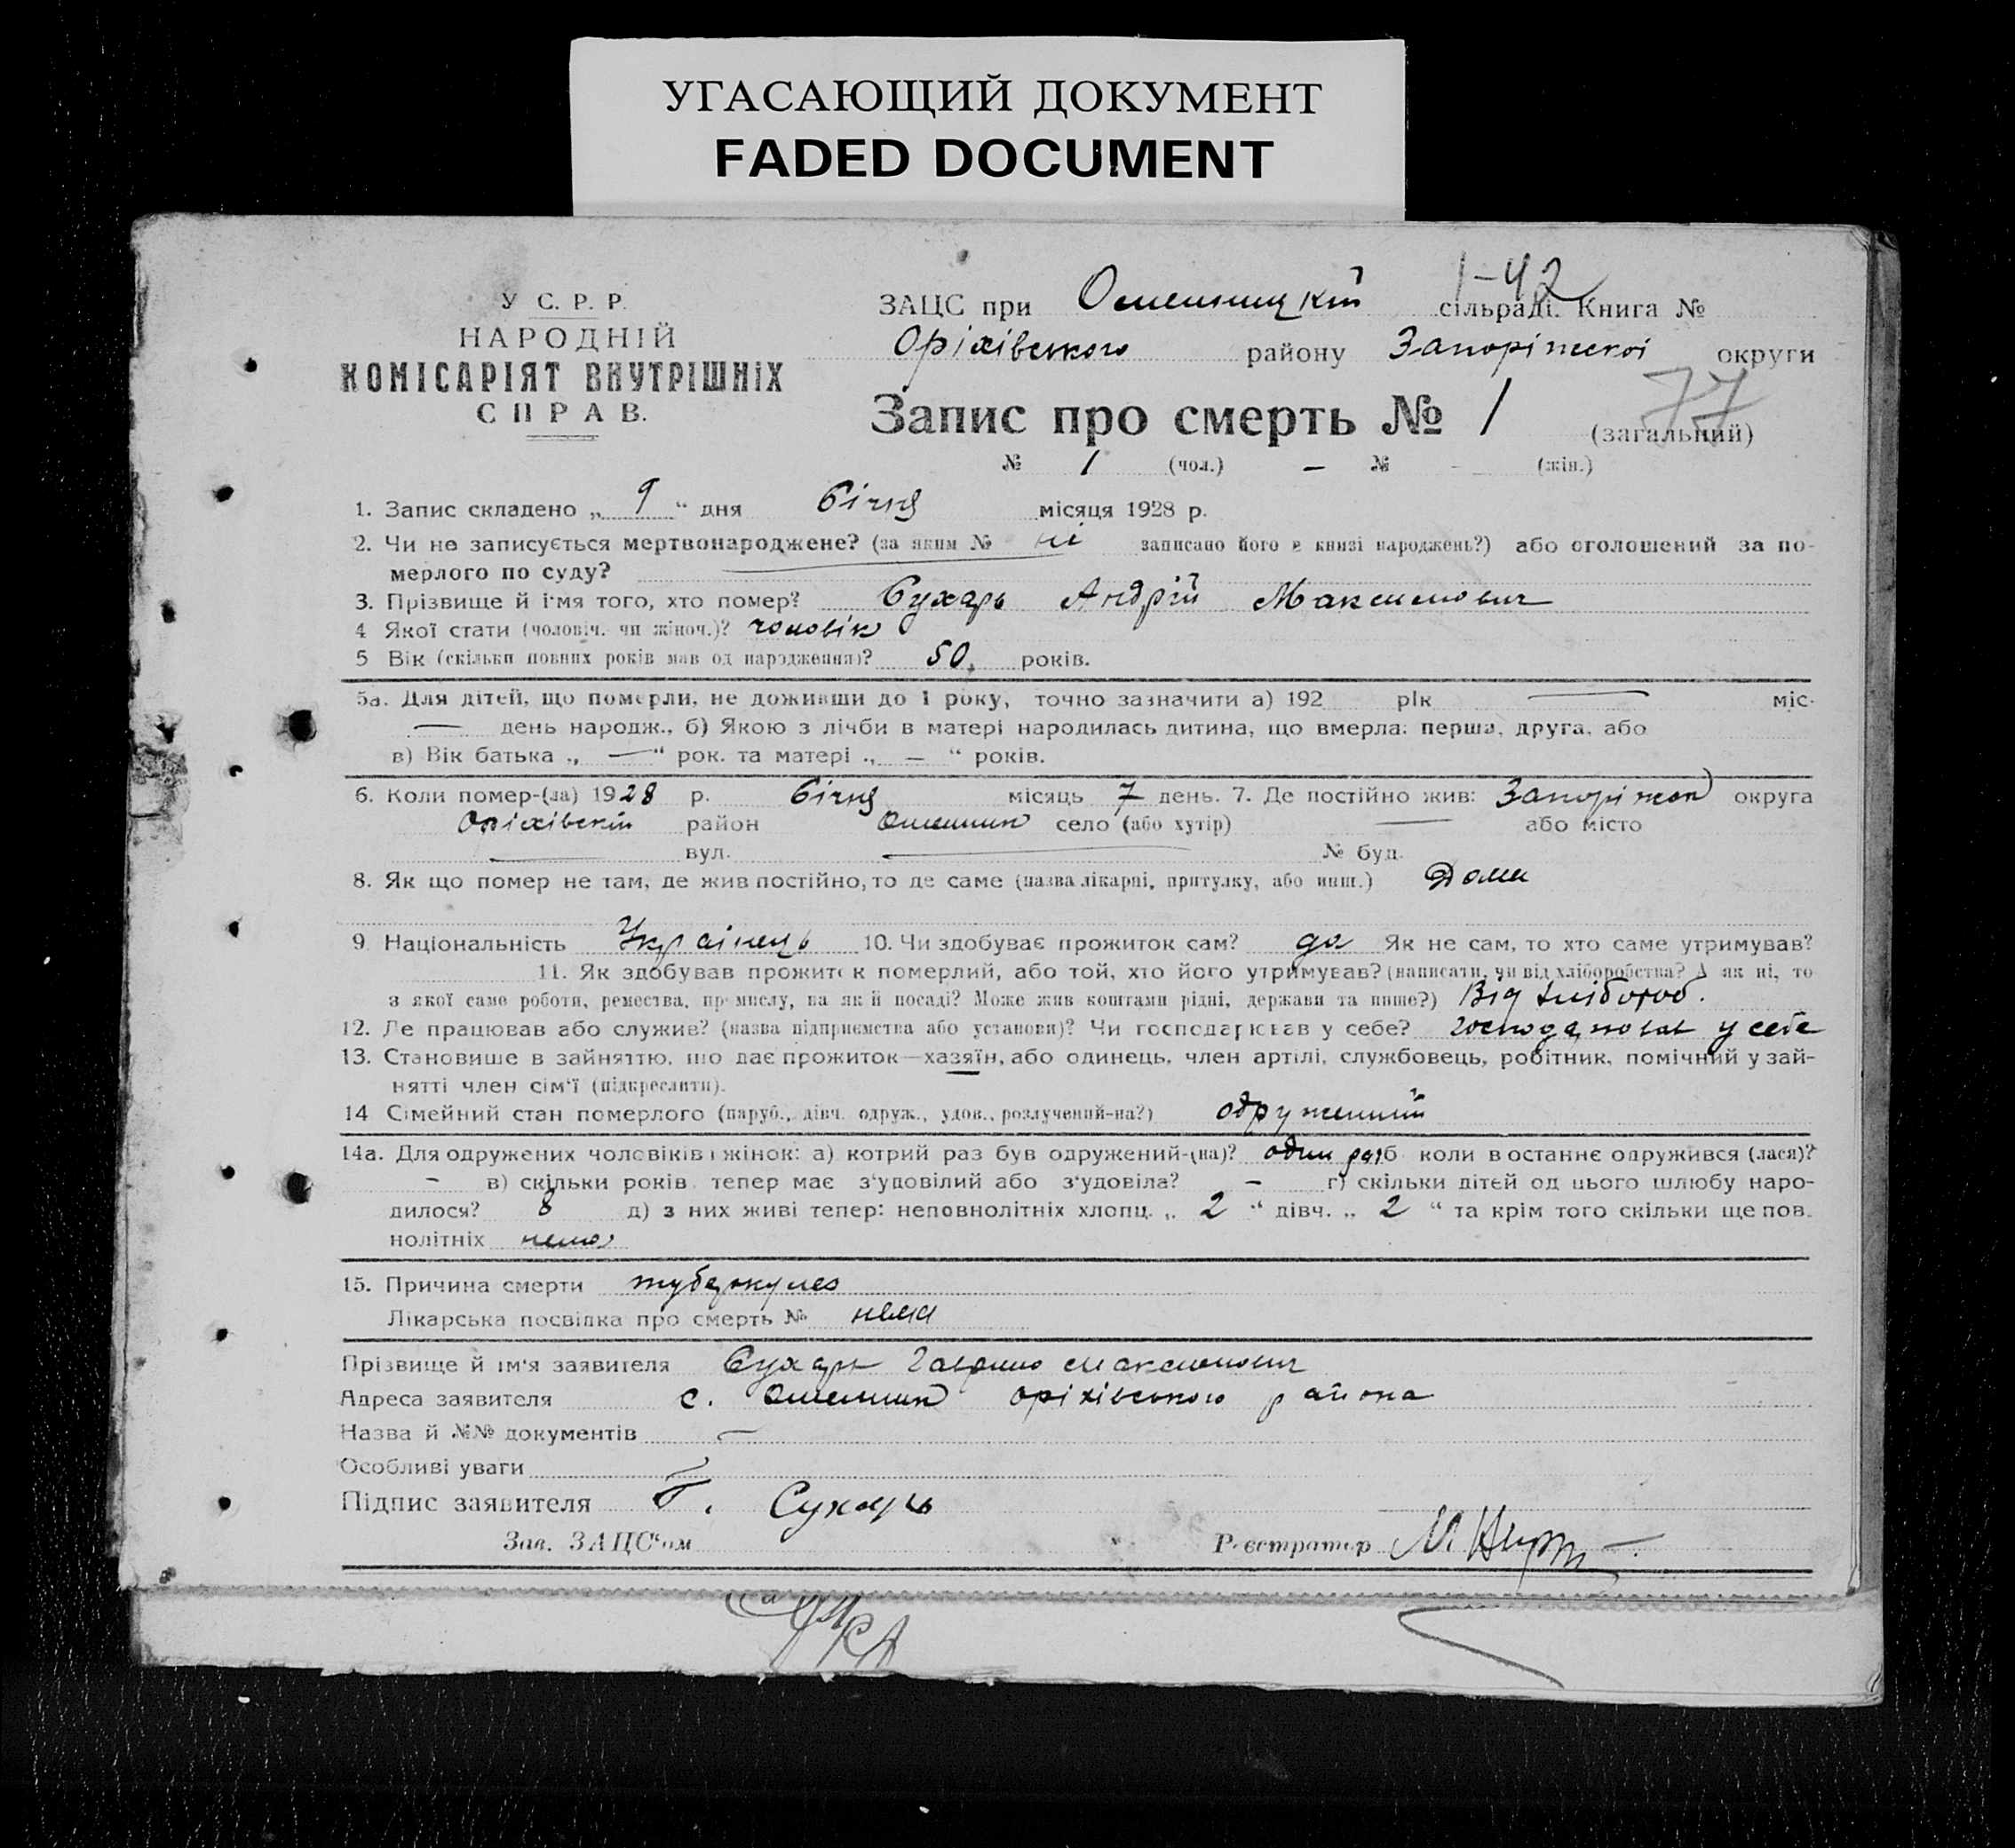 УГАСАЮЩИЙ ДОКУМЕНТ
FADED DOCUMENT
1-42
У С. Р. Р.
НАРОДНІЙ
КОМІСАРІЯТ ВНУТРІШНІХ
СПРАВ.
ЗАЦС при Омельницкій сільраді. Книга №
Оріхівського району Запоріжскої округи
77
Запис про смерть № 1 (загальний)
№ 1 (чол.) — № - (жін.)
1. Запис складено „ 9 “ дня Січня місяця 1928 р.
2. Чи не записується мертвонароджене? (за яким № ні записано його в книзі народжень?) або оголошений за по-
мерлого по суду?
3. Прізвище й ім'я того, хто помер? Сухарь Андрій Максимович
4 Якої стати (чоловіч. чи жіноч.)? чоловік
5 Вік (скільки повних років мав од народження)? 50. років.
5а. Для дітей, що померли, не доживши до 1 року, точно зазначити а) 192 рік — міс-
— день народж., б) Якою з лічби в матері народилась дитина, що вмерла: перша, друга, або
в) Вік батька „ — “ рок. та матері „ — “ років.
6. Коли помер-(ла) 1928 р. Січня місяць 7 день. 7. Де постійно жив: округа
Оріхівській район Омельник село (або хутір) — або місто
— вул. — № буд.
8. Як що помер не там, де жив постійно, то де саме (назва лікарні, притулку, або инш.) Дома
9 Національність Українець 10. Чи здобуває прожиток сам? да Як не сам, то хто саме утримував?
11. Як здобував прожиток померлий, або той, хто його утримував? (написати, чи від хліборобства? А як ні, то
з якої саме роботи, ремества, промислу, на якій посаді? Може жив коштами рідні, держави та инше?) Від хлібороб.
12. Де працював або служив? (назва підприємства або установи)? Чи господарював у себе? господарював у себе
13. Становище в зайняттю, що дає прожиток—хазяїн, або одинець, член артілі, службовець, робітник, помічний у зай-
нятті член сім'ї (підкреслити).
14 Сімейний стан померлого (паруб., дівч. одруж., удов., розлучений-на?) одружений
14а. Для одружених чоловіків і жінок: а) котрий раз був одружений-(на)? один раз б коли в останнє одружився (лася)?
- в) скільки років тепер має з'удовілий або з'удовіла? - г) скільки дітей од цього шлюбу наро-
дилося? 8 д) з них живі тепер: неповнолітніх хлопц. „ 2 “ дівч. „ 2 “ та крім того скільки ще пов.
нолітніх нема
15. Причина смерти туберкулез
Лікарська посвідка про смерть № нема
Прізвище й ім'я заявителя Сухарь Гаврило Максимович
Адреса заявителя с. Омельник оріхівського района
Назва й №№ документів —
Особливі уваги
Підпис заявителя Г. Сухарь
Зав. ЗАЦС'ом Реєстратор